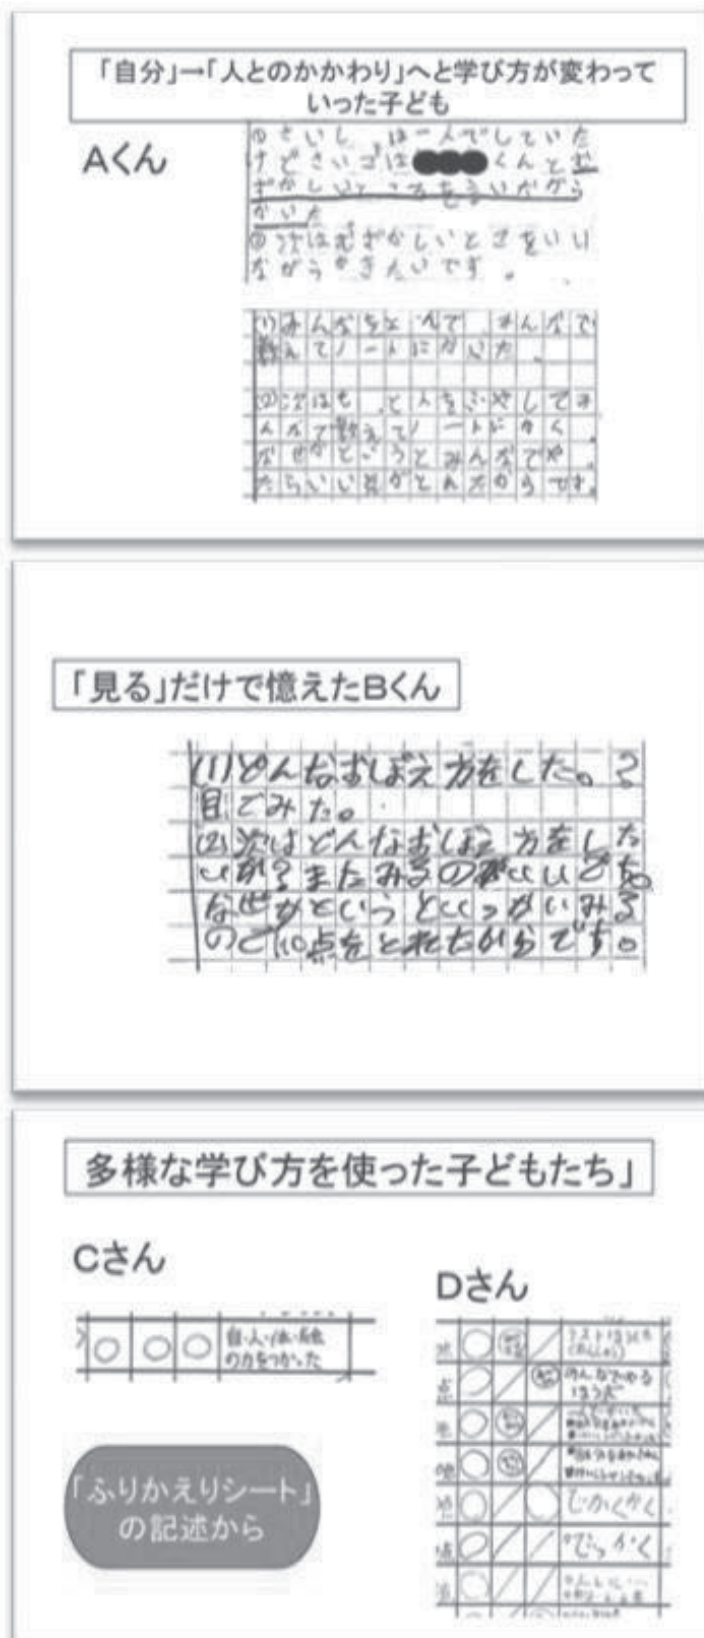 「自分」→「人とのかかわり」へと学び方が変わって
いった子ども
Aくん
①さいしょは一人でしていた
けどさいごは くんとむ
ずかしいところをいいながら
かいた
②次はむずかしいとこをいい
ながらかきたいです。
(1)みんなをよんで、みんなで
教えてノートにかいた。
(2)次はもっと人をふやしてみ
んなで教えてノートにかく。
なぜかというとみんなでやっ
たらいい点がとれたからです。
「見る」だけで憶えたBくん
(1)どんなおぼえ方をした。?
目でみた。
(2)次はどんなおぼえ方をした
いか?またみるのがいいです。
なぜかというといっかいみる
ので10点をとれたからです。
多様な学び方を使った子どもたち」
Cさん
自・人・体・絵
の力をつかった
Dさん
みんなでやる
ほうだ
でかくかく
でっかく
「ふりかえりシート」
の記述から